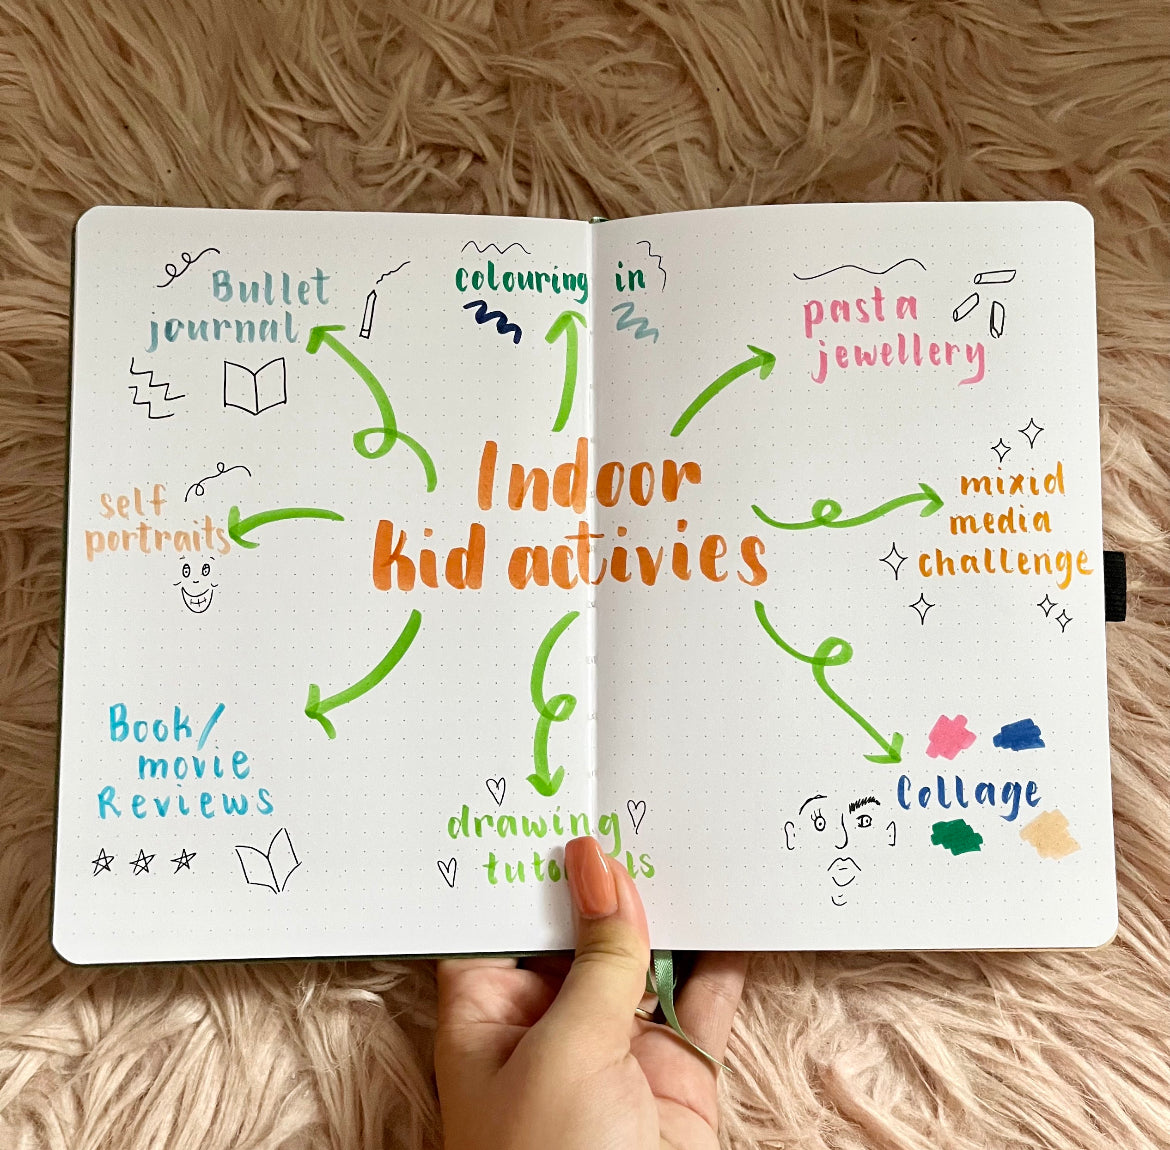 Indoor
kid activies
Bullet
journal
colouring in
pasta
jewellery
mixid
media
challenge
Collage
drawing
Book/
movie
Reviews
self
portraits